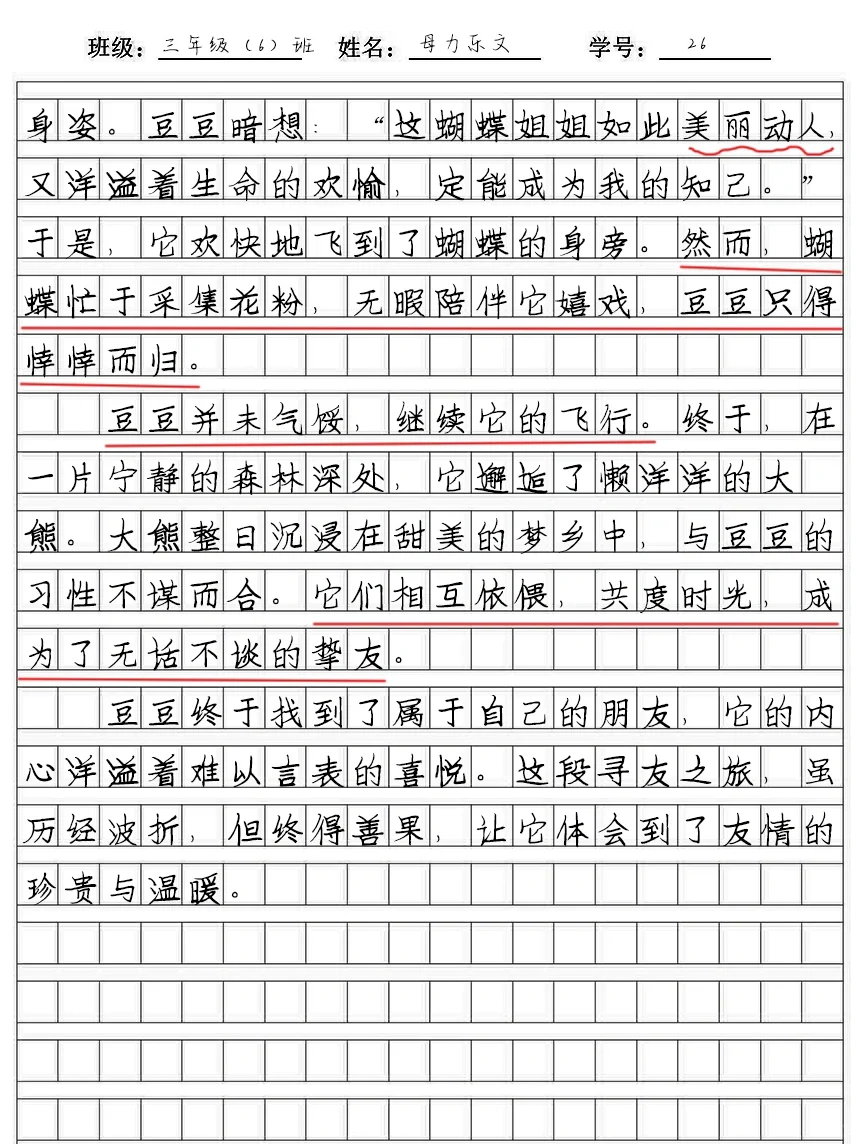 班级：三年级（6）班 姓名：母力乐文 学号：26
身姿。豆豆暗想：“这蝴蝶姐姐如此美丽动人，
又洋溢着生命的欢愉，定能成为我的知己。”
于是，它欢快地飞到了蝴蝶的身旁。然而，蝴
蝶忙于采集花粉，无暇陪伴它嬉戏，豆豆只得
悻悻而归。
豆豆并未气馁，继续它的飞行。终于，在
一片宁静的森林深处，它邂逅了懒洋洋的大
熊。大熊整日沉浸在甜美的梦乡中，与豆豆的
习性不谋而合。它们相互依偎，共度时光，成
为了无话不谈的挚友。
豆豆终于找到了属于自己的朋友，它的内
心洋溢着难以言表的喜悦。这段寻友之旅，虽
历经波折，但终得善果，让它体会到了友情的
珍贵与温暖。